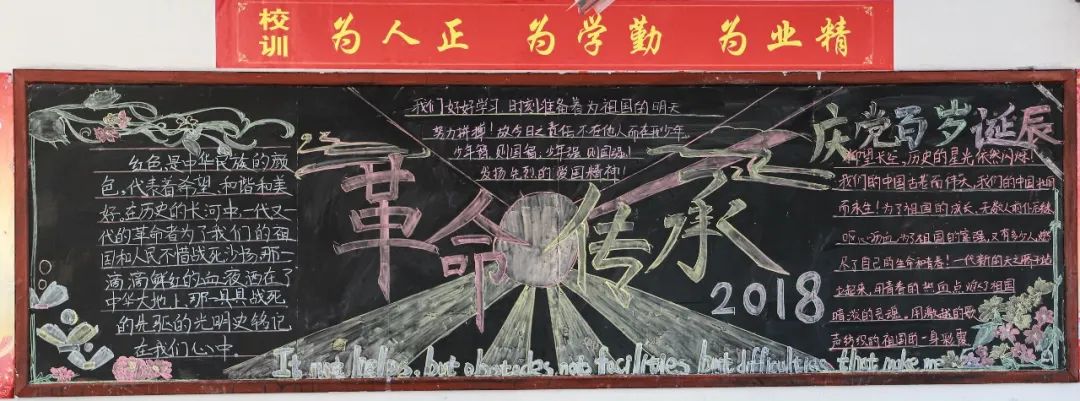 校训 为人正 为学勤 为业精
红色是中华民族的颜
色,代表着希望、和谐和美
好,在历史的长河中,一代又
一代的革命者为了我们的祖
国和人民不惜战死沙场,那一
滴滴鲜红的血液洒在了
中华大地上,那一具具战死
的先驱的光明史铭记
在我们心中。
我们好好学习,时刻准备着为祖国的明天
努力拼搏!故今日之责任,不在他人而在我少年,
少年智,则国智,少年强,则国强。
发扬先烈的爱国精神!
革命传承
2018
It is not helps, but obstacles, not facilities, but difficulties that make me
庆党百岁诞辰
仰望长空,历史的星光依然闪烁!
我们的中国古老而伟大,我们的中国
而永生!为了祖国的成长,无数人前仆后继
呕心沥血,为了祖国的富强,又有多少人燃
尽了自己的生命和青春!一代新的天之骄子站
起来,用青春的热血点燃了祖国
暗淡的灵魂,用激越的歌
声纺织的祖国的一身彩霞